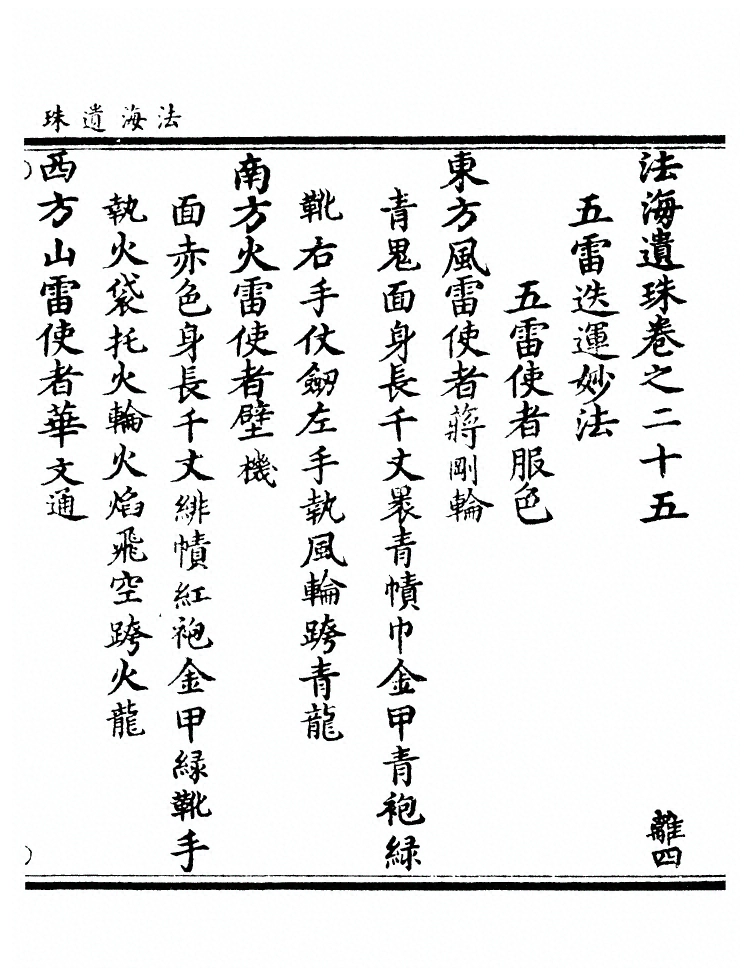 法海遺珠
法海遺珠卷之二十五 離四
五雷迭運妙法
五雷使者服色
東方風雷使者蔣剛輪
青鬼面身長千丈褁青幘巾金甲青袍緑
靴右手仗劒左手執風輪跨青龍
南方火雷使者壁機
面赤色身長千丈緋幘紅袍金甲緑靴手
執火袋托火輪火焰飛空跨火龍
西方山雷使者華文通